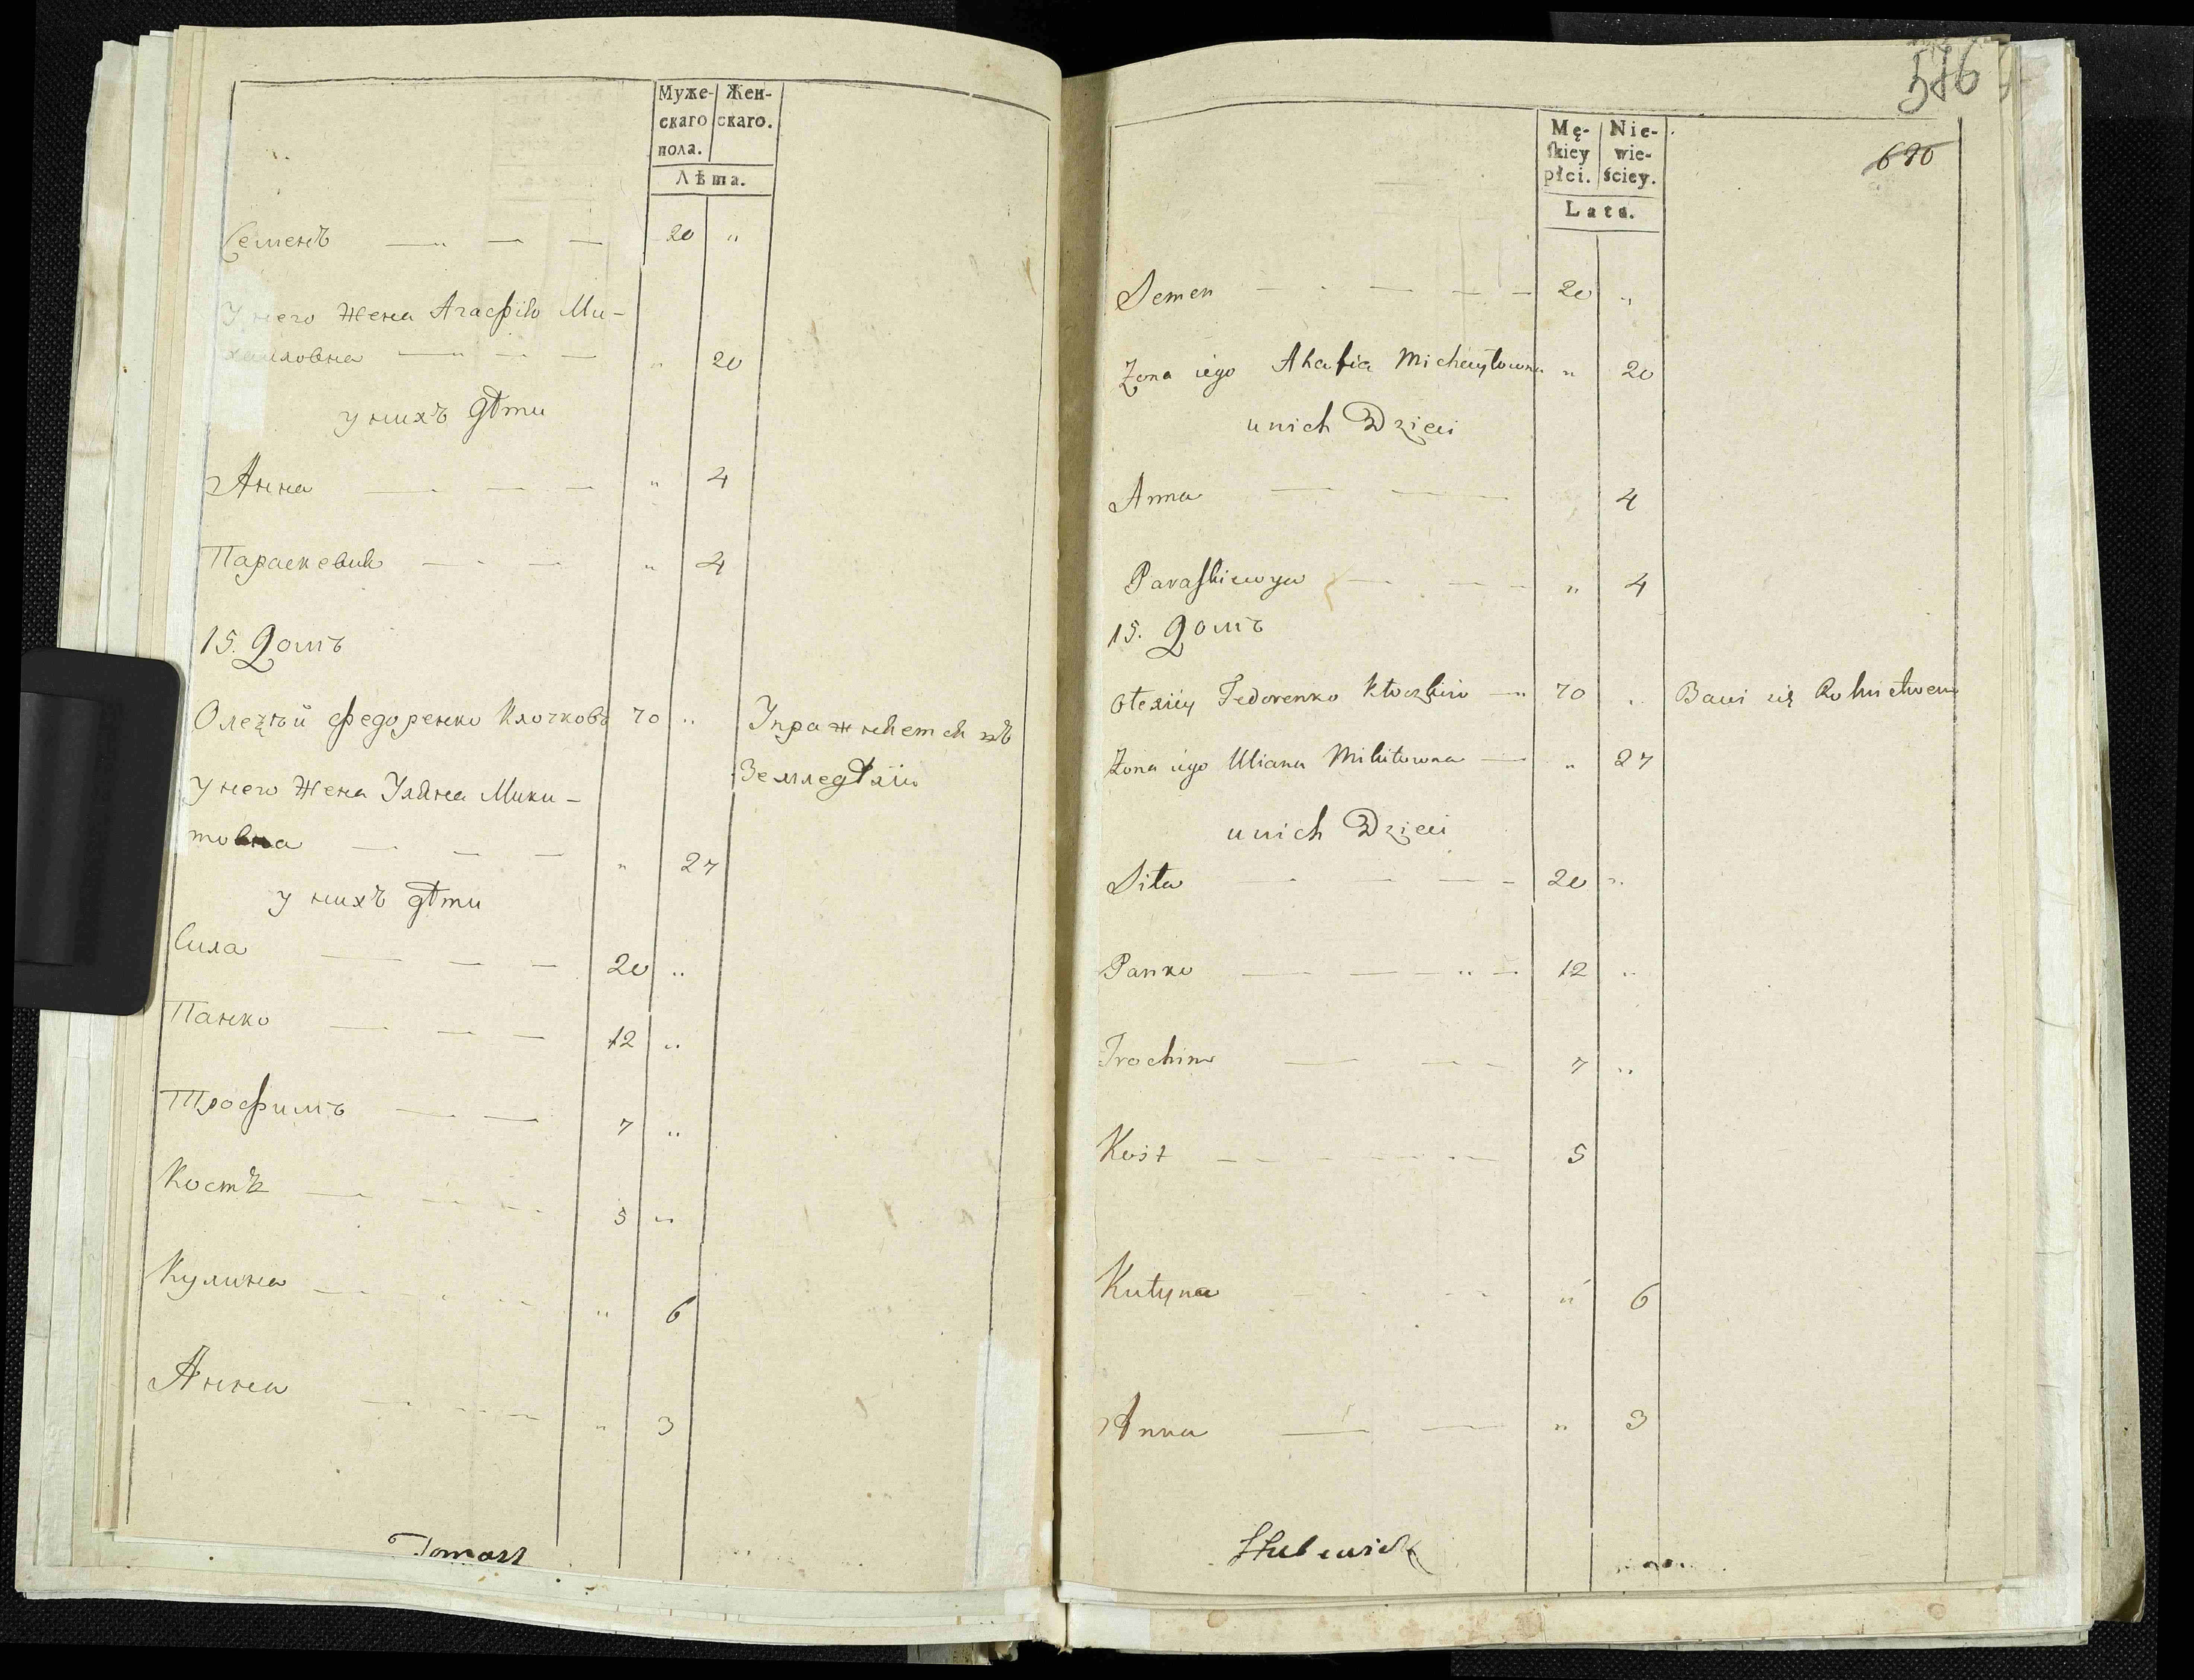 Муже- Жен-
скаго скаго.
пола.
Лѣта.
Семенъ — — — 20 "
У него жена Агафія Ми-
хайловна — — — " 20
у нихъ дѣти
Анна — — — " 4
Параскевия — — — " 4
15. Домъ
Олексѣй Федоренко Клочковъ 70 " Упражняется въ
Земледѣліи
у него жена Уляна Мики-
товна — — — " 27
у нихъ дѣти
Сила — — — 20 "
Панко — — — 12 "
Трофимъ — — 7 "
Костѣ — — — 5 "
Кулина — — — " 6
Анна — — — " 3
Tomasz
576
680
Mę- Nie-
skiey wie-
płci. ściey.
Lata.
Semen — — — — 20 "
Zona iego Ahafia Michayłowna " 20
u nich Dzieci
Anna — — — 4
Paraskiewya — — — " 4
15. Домъ
Olexiey Fedorenko Kłoczkiw — 70 " Bawi się Rolnictwem
Zona iego Uliana Mikitowna — " 27
u nich Dzieci
Siła — — — — 20 "
Panko — — — 12 "
Trochim — — — 7 "
Kost — — — 5
Kułyna — — — " 6
Anna — — " 3